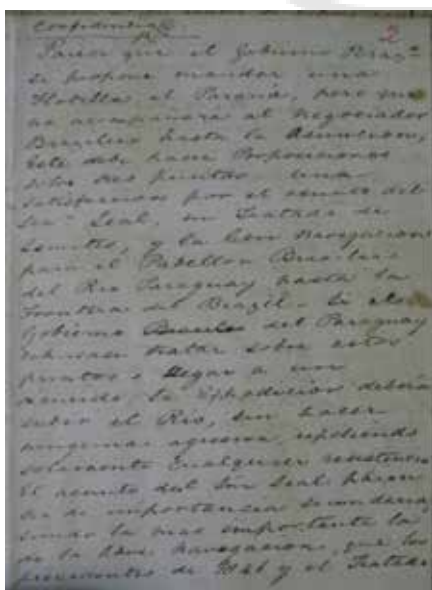 Confidencial
2
Parece que el Gobierno Braz.º
se propone mandar una
Flotilla al Paraná, pero que
no acompañara al negociador
Brazilero hasta la Asuncion,
Este debe hacer Proposiciones
sobre tres puntos - una
satisfaccion por el asunto del
Sor Leal, un Tratado de
Limites, y la libre navegacion
para el Pabellon Brasilero
del Rio Paraguay hasta la
Frontera del Brazil. Si el
Gobierno del Paraguay
tratar sobre estos
puntos o llegar a un
acuerdo, la Expedicion deberá
subir el Rio, sin hacer
ninguna agresion, repeliendo
solamente cualquier resistencia
El asunto del Sor Leal parece
ser de importancia secundaria,
siendo la mas importante la
de la libre navegacion, que los
precedentes de 1846 y el Tratado